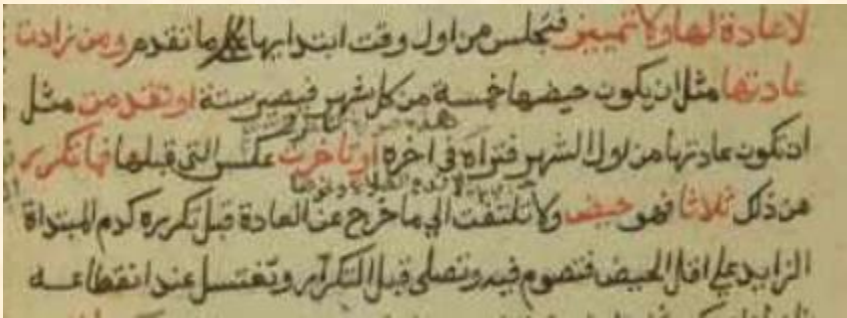 لاعادة لها ولا تمييز فتجلس من اول وقت ابتدابها علي ما تقدم ومن زادت
عادتها مثل ان يكون حيضها خمسة من كل شهر فيصير ستة او تقدمت مثل
ان تكون عادتها من اول الشهر فتراه في اخره او تاخرت عكس التي قبلها فما تكرر
من ذلك ثلاثا فهو حيض ولا تلتفت الي ما خرج عن العادة قبل تكرره كدم المبتداة
الزايد علي اقل الحيض فتصوم فيه وتصلي قبل التكرار وتغتسل عند انقطاعه